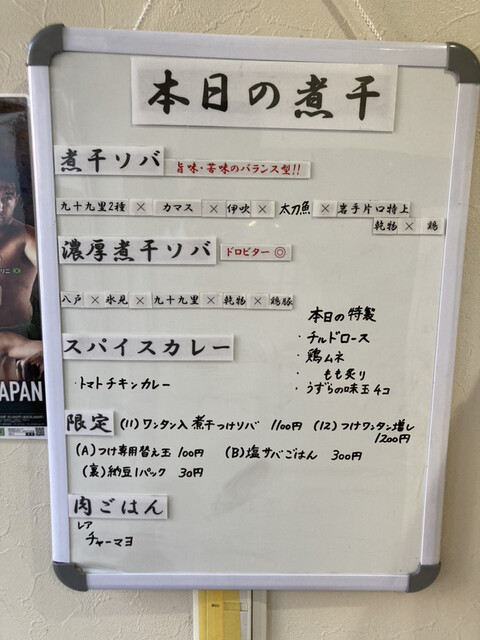 本日の煮干
煮干ソバ 旨味・苦味のバランス型!!
九十九里2種 × カマス × 伊吹 × 太刀魚 × 岩手片口特上
乾物 × 鶏
濃厚煮干ソバ ドロビター◎
八戸 × 氷見 × 九十九里 × 乾物 × 鶏豚
本日の特製
・チルドロース
・鶏ムネ
・もも炙り
・うずらの味玉4コ
スパイスカレー
・トマトチキンカレー
限定 (11) ワンタン入煮干つけソバ 1100円 (12) つけワンタン増し
1200円
(A) つけ専用替え玉 100円 (B) 塩サバごはん 300円
(裏) 納豆1パック 30円
肉ごはん
レア
チャーマヨ
JAPAN